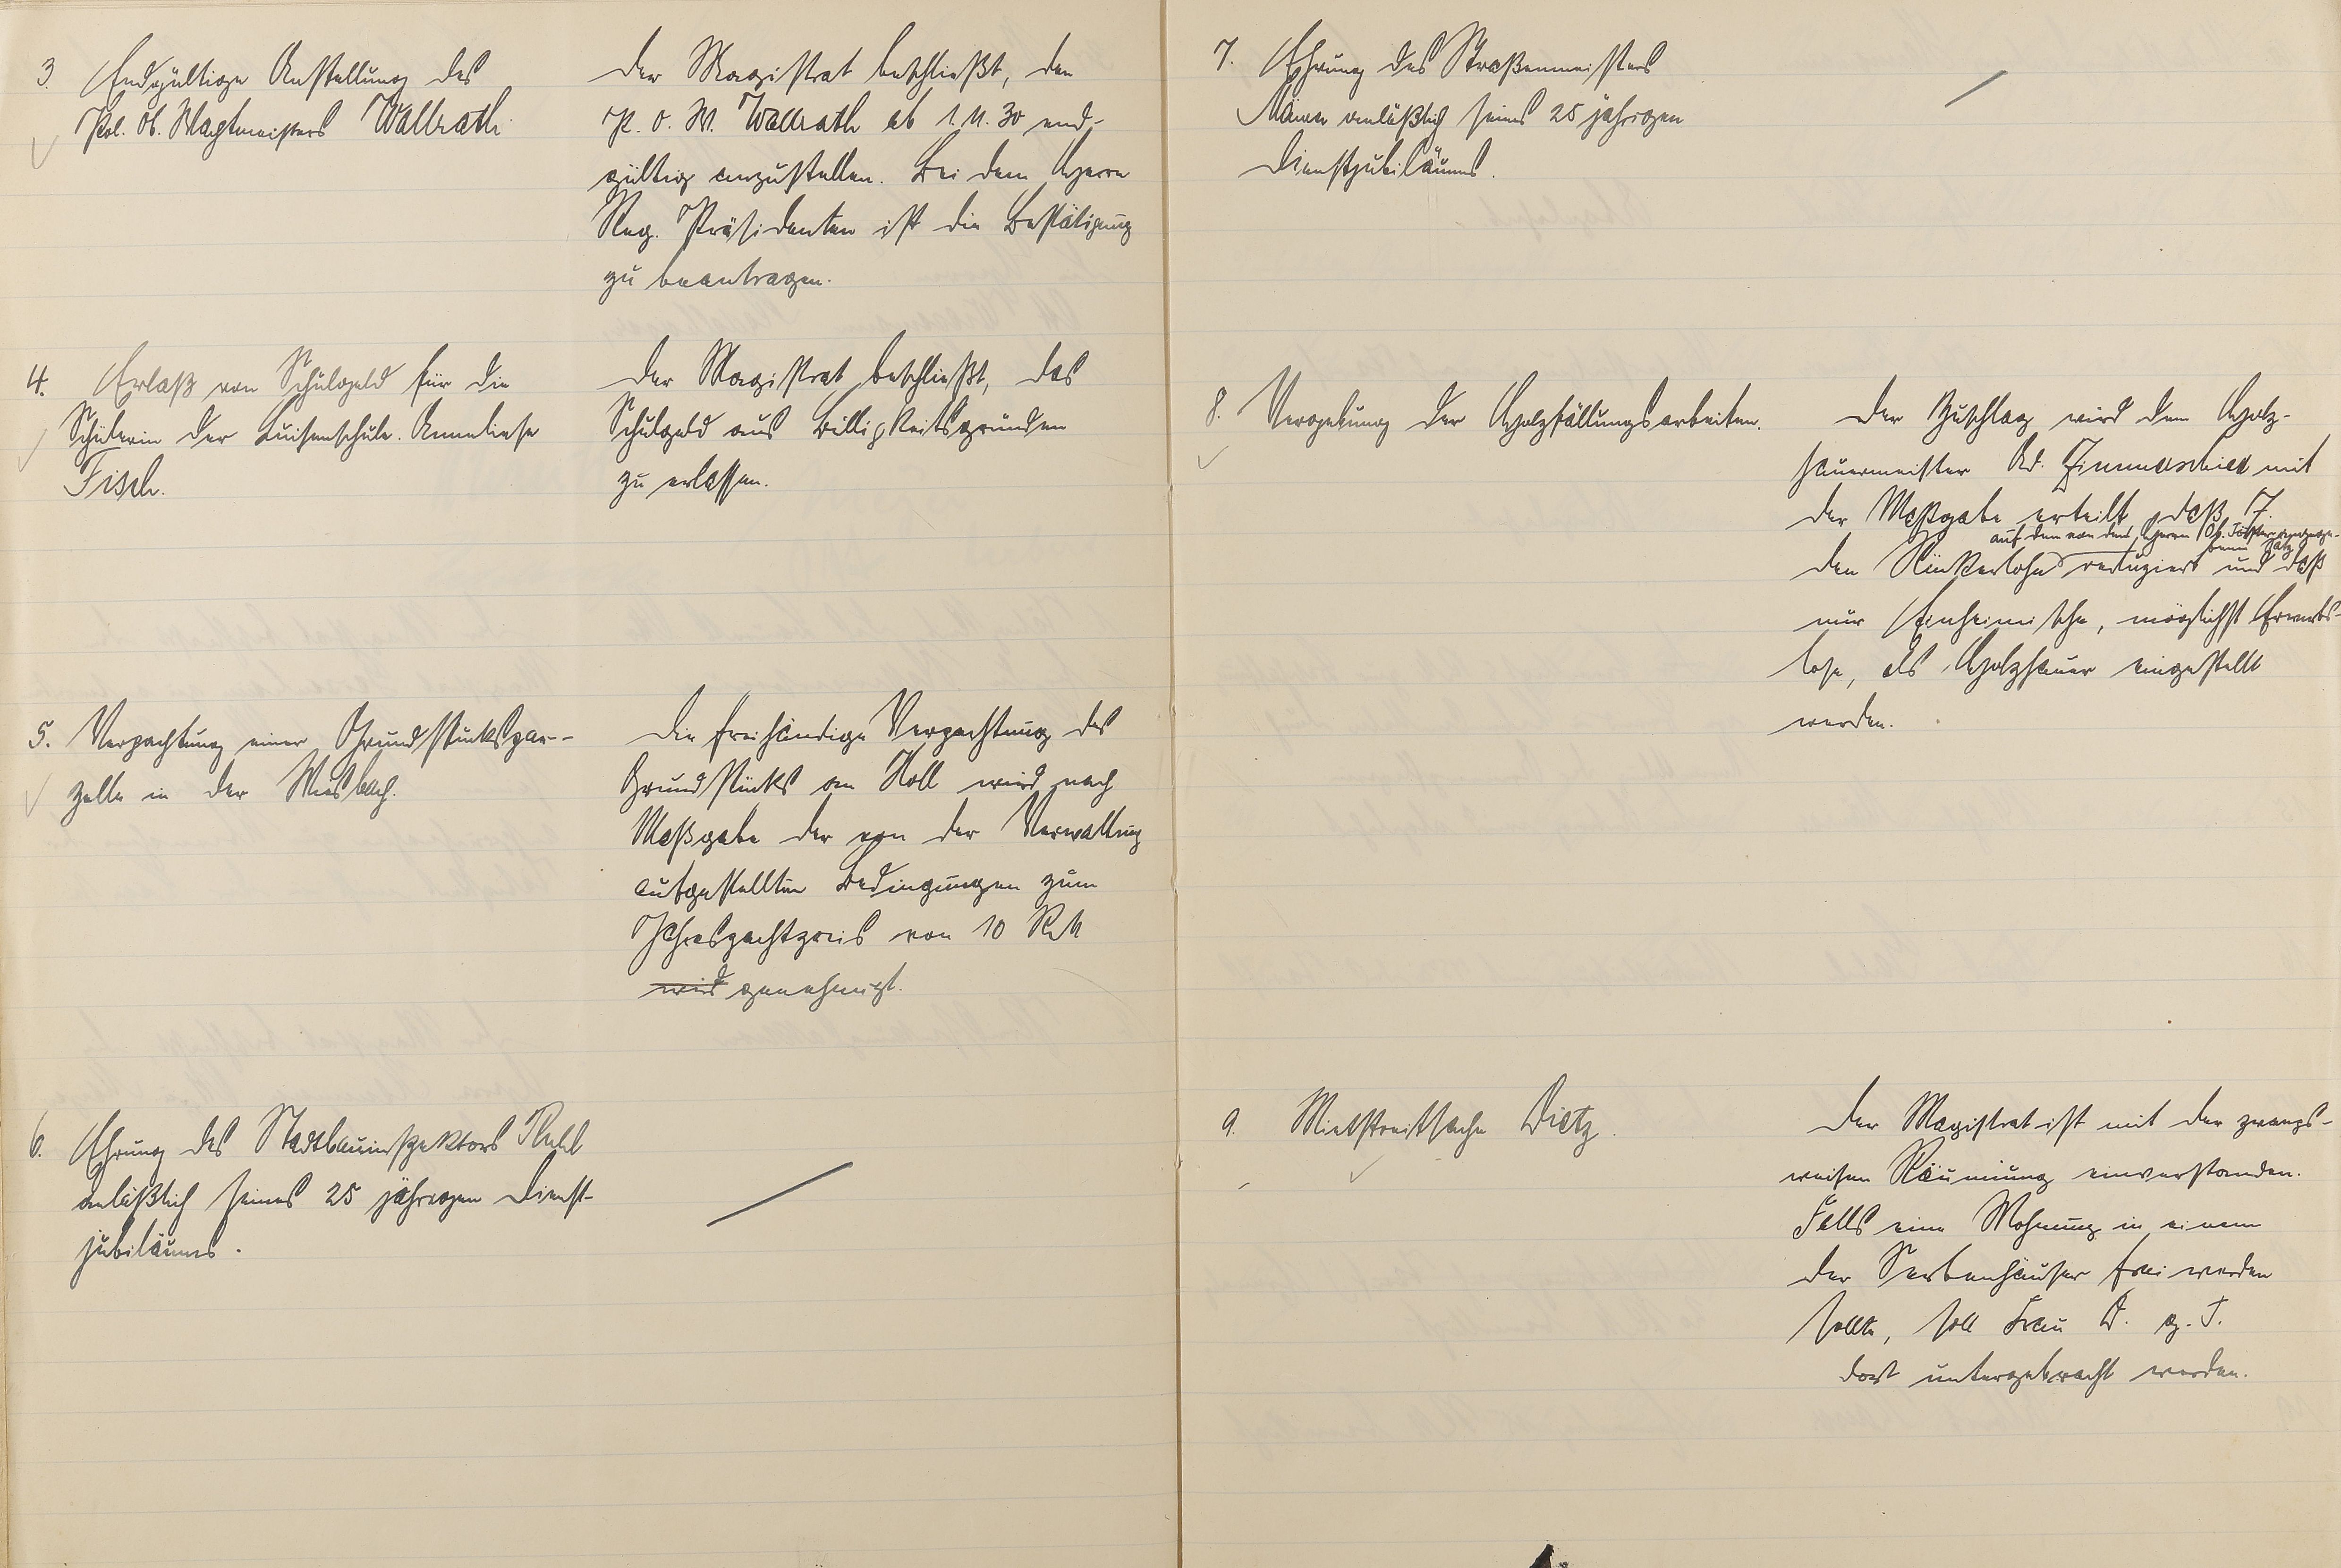 3. Endgültige Anstellung des
Pol. Ob. Wachtmeisters Wallrath.
Der Magistrat beschließt, den
P. O. W. Wallrath ab 1. 11. 30 end-
gültig anzustellen. Bei dem Herrn
Reg. Präsidenten ist die Bestätigung
zu beantragen.
4. Erlaß von Schulgeld für die
Schülerin der Luisenschule. Anneliese
Fisch.
Der Magistrat beschließt, das
Schulgeld aus Billigkeitsgründen
zu erlassen.
5. Verpachtung einer Grundstückspar-
zelle in der Wiesbach.
Die freihändige Verpachtung des
Grundstücks an Holl wird nach
Maßgabe der von der Verwaltung
aufgestellten Bedingungen zum
Jahrespachtpreis von 10 RM
wird genehmigt.
6. Ehrung des Stadtbauinspektors Ruhl
anläßlich seines 25 jährigen Dienst-
jubiläums.
7. Ehrung des Straßenmeisters
anläßlich seines 25 jährigen
Dienstjubiläums.
8. Vergebung der Holzfällungsarbeiten.
Der Zuschlag wird dem Holz-
hauermeister Ad. Zimmerschied mit
der Maßgabe erteilt, daß
auf den von dem Herrn Ob. Förster
den Rückerlohn reduziert und daß
nur Einheimische, möglichst Erwerbs-
lose, als Holzhauer eingestellt
werden.
9. Mietstreitsache Dietz.
Der Magistrat ist mit der zwangs-
weisen Räumung einverstanden.
Falls eine Wohnung in einem
der häuser frei werden
sollte, soll Frau D. z. T.
dort untergebracht werden.